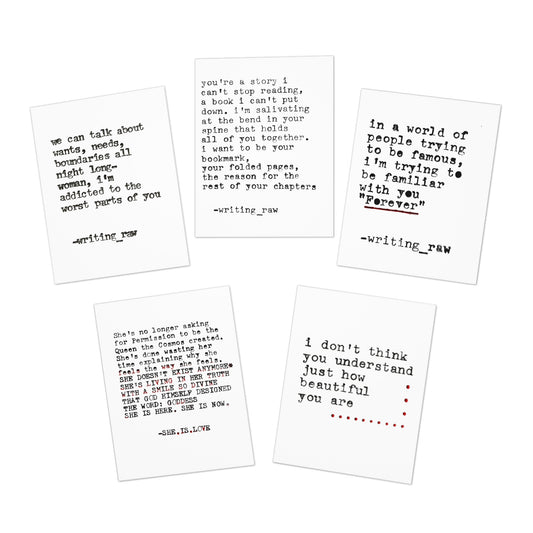 we can talk about
wants, needs,
boundaries all
night long—
woman, i'm
addicted to the
worst parts of you
-writing_raw
you're a story i
can't stop reading,
a book i can't put
down. i'm salivating
at the bend in your
spine that holds
all of you together.
i want to be your
bookmark,
your folded pages,
the reason for the
rest of your chapters
-writing_raw
in a world of
people trying
to be famous,
i'm trying to
be familiar
with you
"Forever"
-writing_raw
She's no longer asking
for Permission to be the
Queen the Cosmos created.
She's done wasting her
time explaining why she
feels the way she feels.
SHE DOESN'T EXIST ANYMORE.
SHE'S LIVING IN HER TRUTH
WITH A SMILE SO DIVINE
THAT GOD HIMSELF DESIGNED
THE WORD: GODDESS
SHE IS HERE. SHE IS NOW.
-SHE.IS.LOVE
i don't think
you understand
just how
beautiful
you are